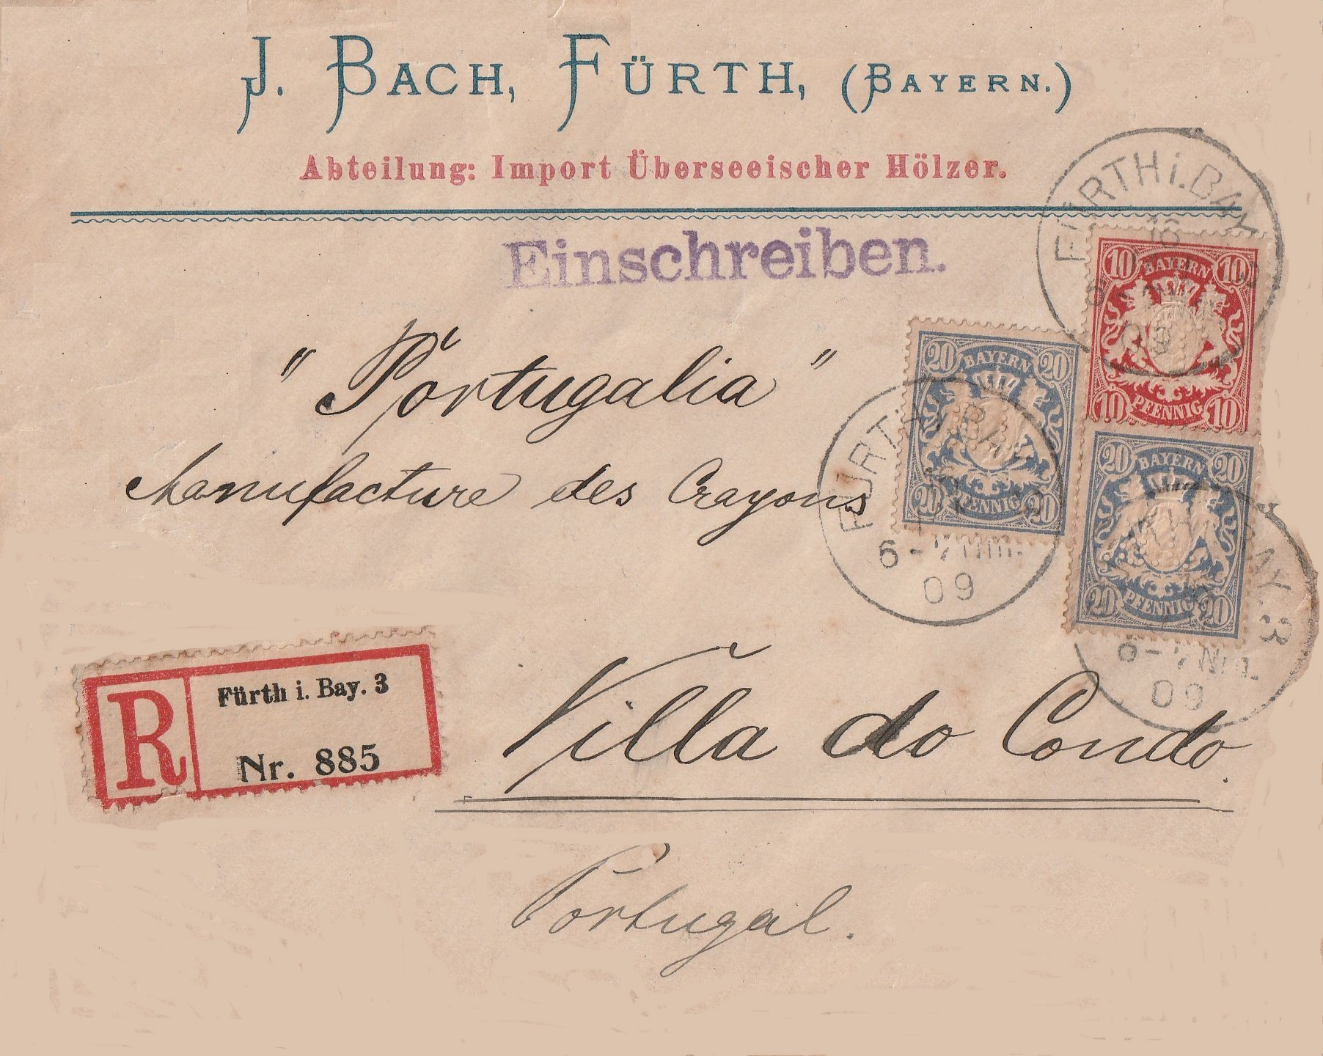 J. BACH, FÜRTH, (BAYERN.)
Abteilung: Import Überseeischer Hölzer.
Einschreiben.
"Portugalia"
Manufacture des Crayons
Villa do Condo.
Portugal.
R
Fürth i. Bay. 3
Nr. 885
FÜRTH i. BAY.
16
09
10 BAYERN 10
10 PFENNIG 10
20 BAYERN 20
20 PFENNIG 20
FÜRTH
6-7 Nm.
09
20 BAYERN 20
20 PFENNIG 20
BAY. 3
6-7 Nm.
09